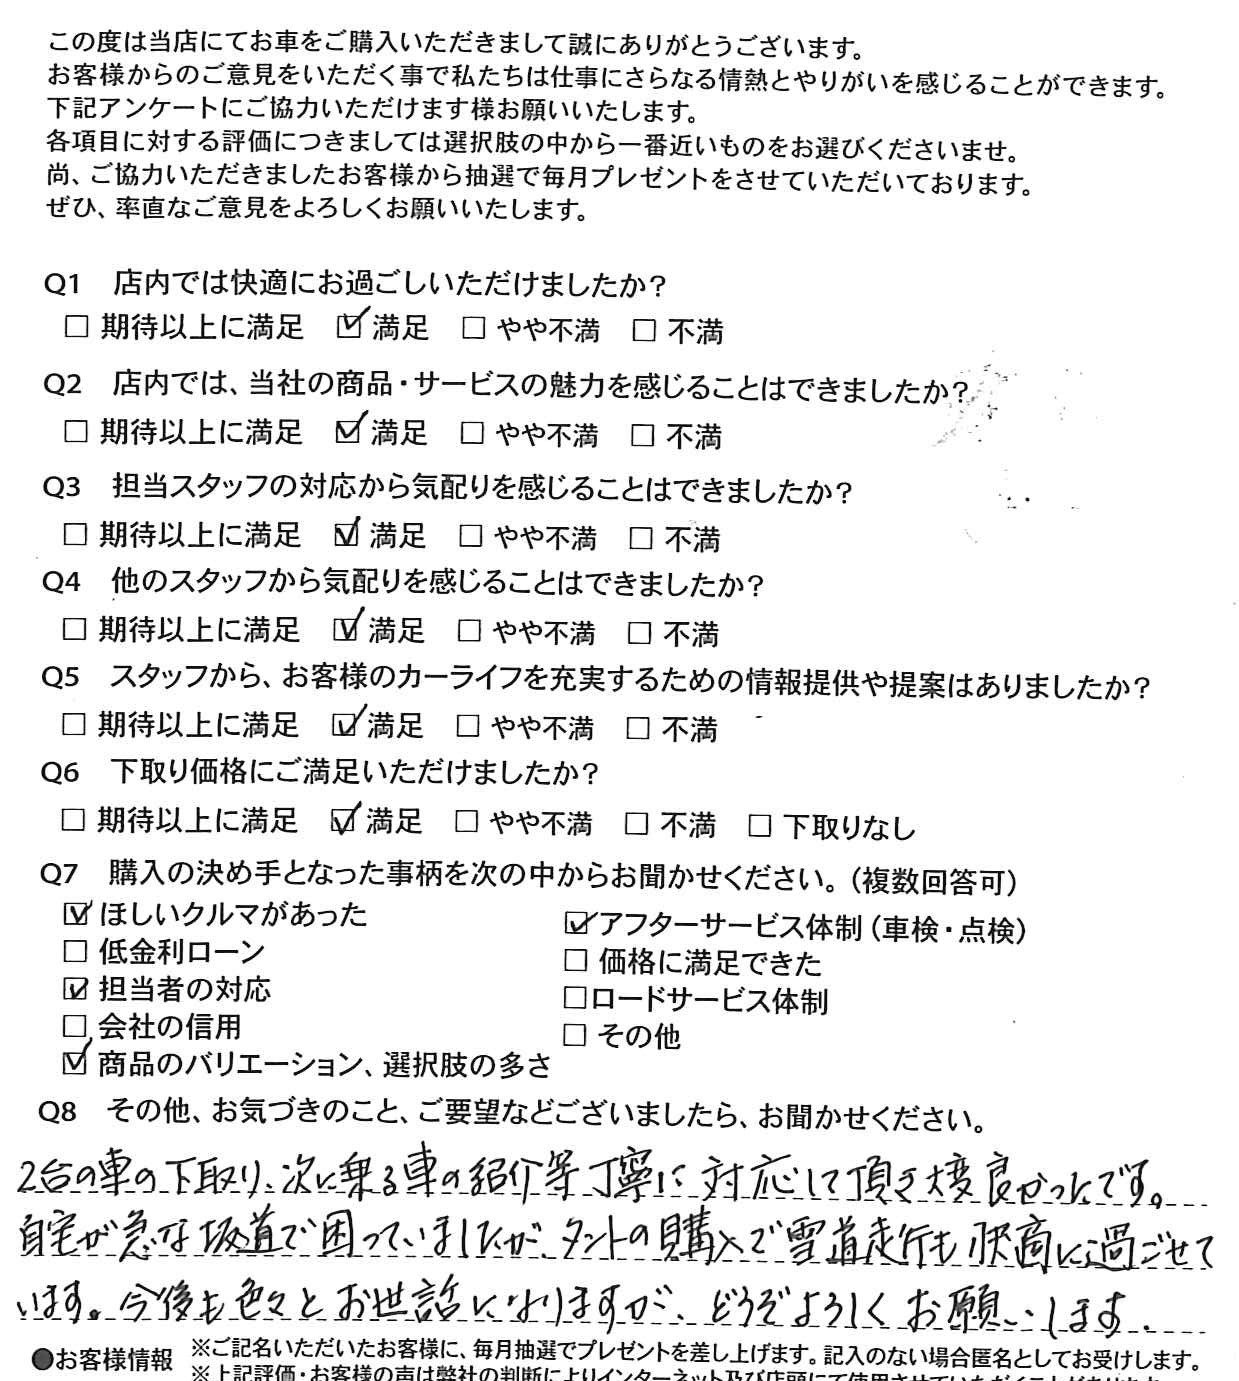 この度は当店にてお車をご購入いただきまして誠にありがとうございます。
お客様からのご意見をいただく事で私たちは仕事にさらなる情熱とやりがいを感じることができます。
下記アンケートにご協力いただけます様お願いいたします。
各項目に対する評価につきましては選択肢の中から一番近いものをお選びくださいませ。
尚、ご協力いただきましたお客様から抽選で毎月プレゼントをさせていただいております。
ぜひ、率直なご意見をよろしくお願いいたします。
Q1 店内では快適にお過ごしいただけましたか?
□ 期待以上に満足 ☑ 満足 □ やや不満 □ 不満
Q2 店内では、当社の商品・サービスの魅力を感じることはできましたか?
□ 期待以上に満足 ☑ 満足 □ やや不満 □ 不満
Q3 担当スタッフの対応から気配りを感じることはできましたか?
□ 期待以上に満足 ☑ 満足 □ やや不満 □ 不満
Q4 他のスタッフから気配りを感じることはできましたか?
□ 期待以上に満足 ☑ 満足 □ やや不満 □ 不満
Q5 スタッフから、お客様のカーライフを充実するための情報提供や提案はありましたか?
□ 期待以上に満足 ☑ 満足 □ やや不満 □ 不満
Q6 下取り価格にご満足いただけましたか?
□ 期待以上に満足 ☑ 満足 □ やや不満 □ 不満 □ 下取りなし
Q7 購入の決め手となった事柄を次の中からお聞かせください。(複数回答可)
☑ ほしいクルマがあった ☑ アフターサービス体制(車検・点検)
□ 低金利ローン □ 価格に満足できた
☑ 担当者の対応 □ロードサービス体制
□ 会社の信用 □ その他
☑ 商品のバリエーション、選択肢の多さ
Q8 その他、お気づきのこと、ご要望などございましたら、お聞かせください。
2台の車の下取り、次に乗る車の紹介等丁寧に対応して頂き大変良かったです。
自宅が急な坂道で困っていましたが、タントの購入で雪道走行も快適に過ごせて
います。今後も色々とお世話になりますが、どうぞよろしくお願いします。
●お客様情報 ※ご記名いただいたお客様に、毎月抽選でプレゼントを差し上げます。記入のない場合匿名としてお受けします。
※上記評価・お客様の声は弊社の判断によりインターネット及び店頭にて使用させていただくことがあります